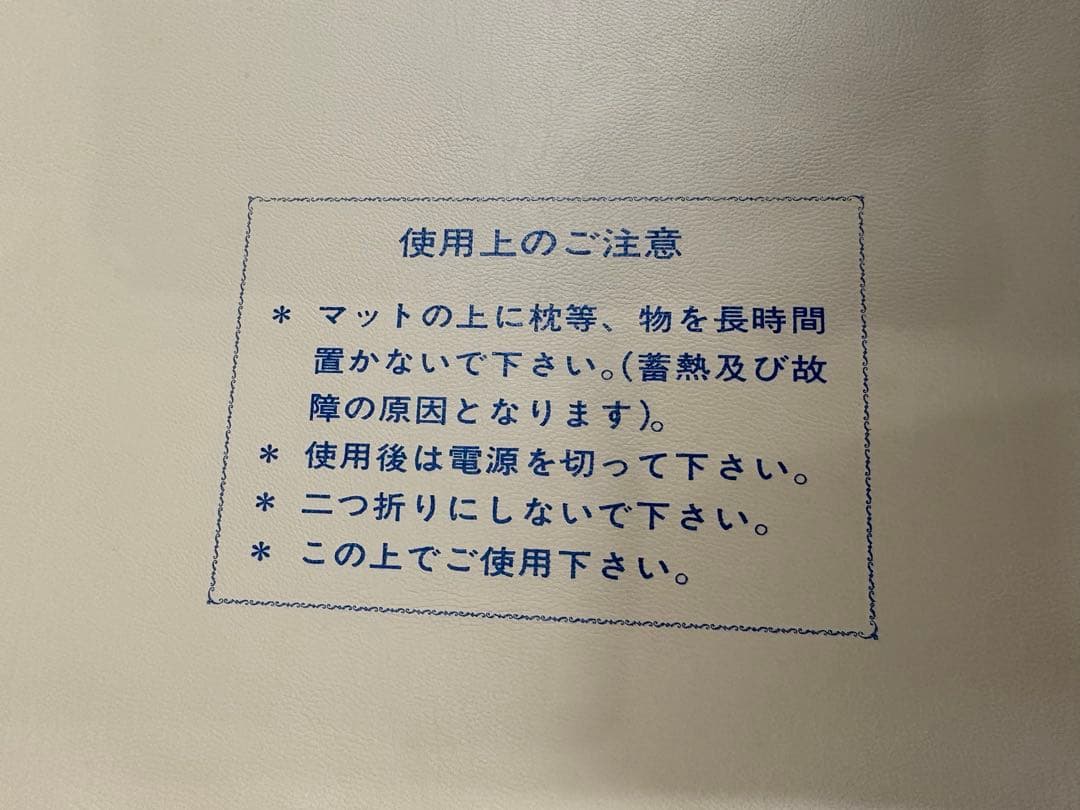 使用上のご注意
* マットの上に枕等、物を長時間
置かないで下さい。(蓄熱及び故
障の原因となります)。
* 使用後は電源を切って下さい。
* 二つ折りにしないで下さい。
* この上でご使用下さい。